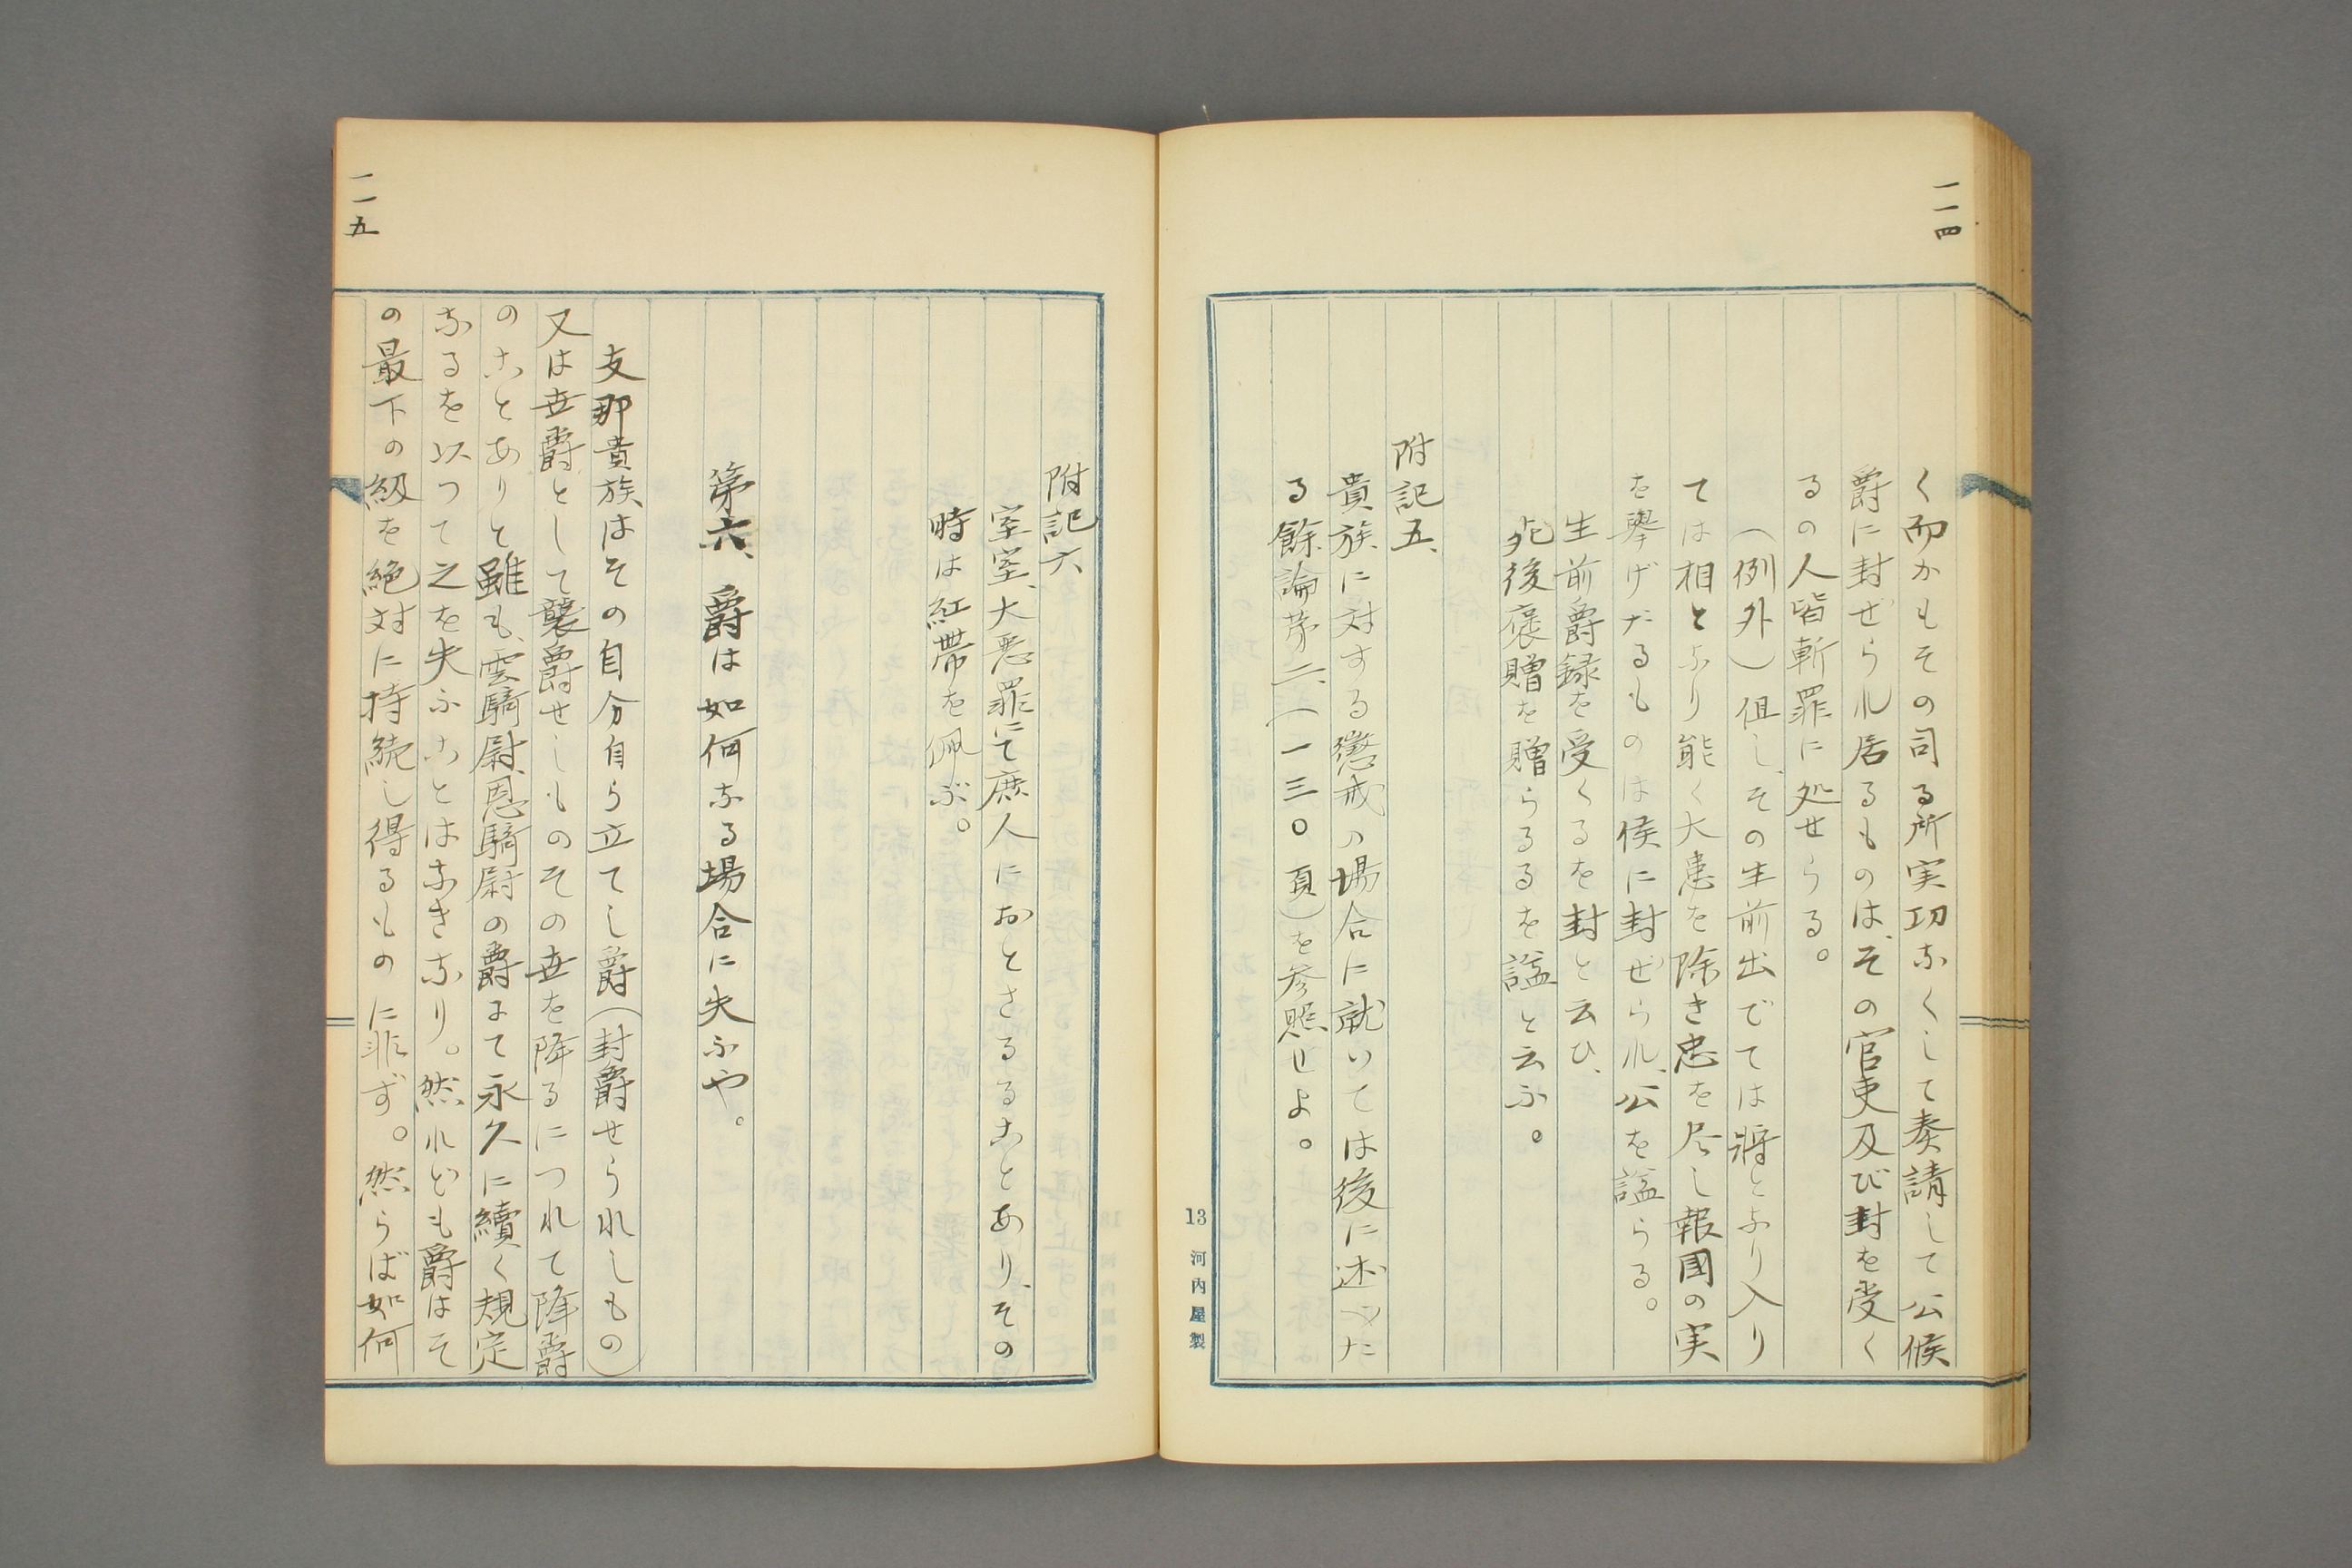 一一四
く而かもその司る所実功なくして奏請して公候
爵に封ぜられ居るものは、その官吏及び封を受く
るの人皆斬罪に処せらる。
(例外)但し、その生前出でては將となり入り
ては相となり能く大患を除き忠を尽し報國の実
を擧げたるものは候に封ぜられ、公を謚らる。
生前爵録を受くるを封と云ひ、
死後褒贈を贈らるるを謚と云ふ。
附記五、
貴族に対する懲戒の場合に就いては後に述べた
る餘論第二、(一三〇頁)を参照せよ。
13 河内屋製
一一五
附記六
室室、大悪罪にて庶人におとさるることあり、その
時は紅帶を佩ぶ。
第六、爵は如何なる場合に失ふや。
支那貴族はその自分自ら立てし爵(封爵せられしもの)
又は世爵として襲爵せしものその世を降るにつれて降爵
のことありと雖も、雲騎尉、恩騎尉の爵まて永久に續く規定
なるを以つて之を失ふことはなきなり。然れども爵はそ
の最下の級を絶対に持続し得るものに非ず。然らば如何